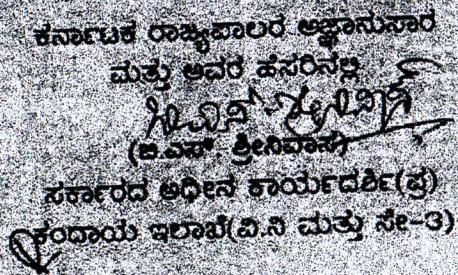 ಕರ್ನಾಟಕ ರಾಜ್ಯಪಾಲರ ಆಜ್ಞಾನುಸಾರ
ಮತ್ತು ಅವರ ಹೆಸರಿನಲ್ಲಿ
(ಜಿ.ಎಸ್. ಶ್ರೀನಿವಾಸ)
ಸರ್ಕಾರದ ಅಧೀನ ಕಾರ್ಯದರ್ಶಿ(ಪ್ರ)
ಕಂದಾಯ ಇಲಾಖೆ(ವಿ.ನಿ ಮತ್ತು ಸೇ-3)